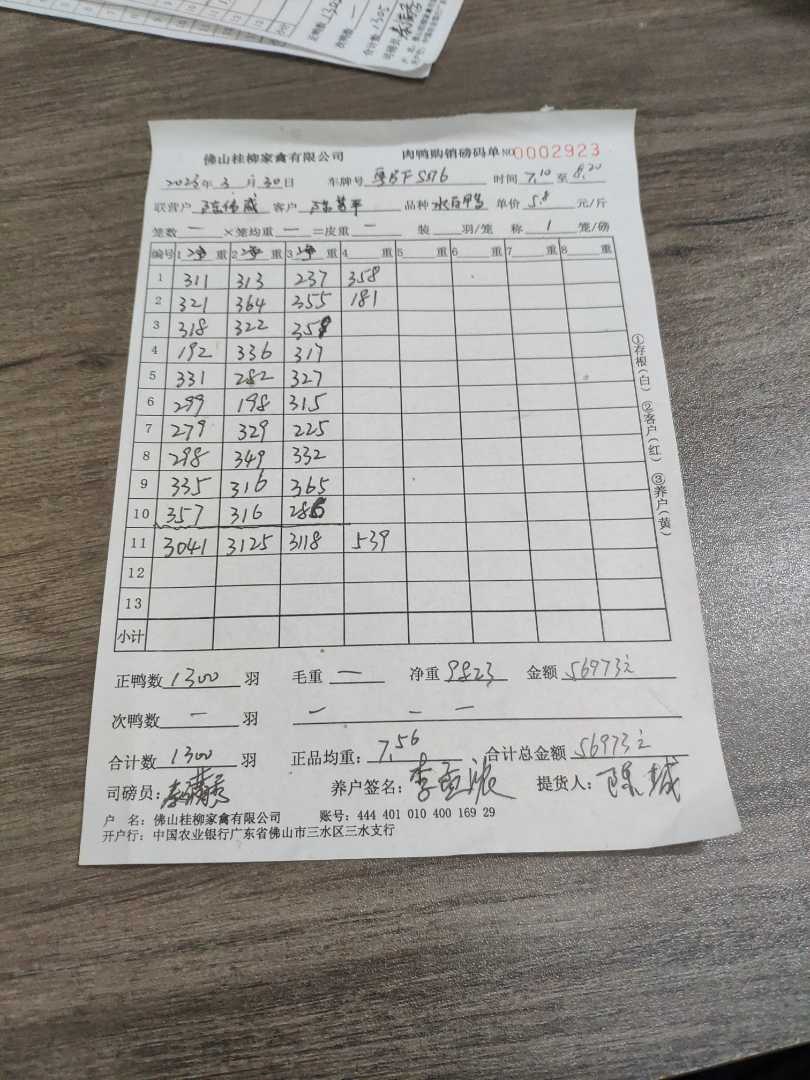 正鸭数 1300
次鸭数 一
合计数 1305
佛山桂柳家禽有限公司 肉鸭购销磅码单 NO 0002923
2023年3月30日 车牌号 粤BF 时间 7.10至8.20
联营户 客户 品种 水白鸭 单价 5.8 元/斤
笼数 一 ×笼均重 一 =皮重 一 装 羽/笼 称 1 笼/磅
编号 1 净 重 2 净 重 3 净 重 4 重 5 重 6 重 7 重 8 重
1 311 313 237 358
2 321 364 355 181
3 318 322 358
4 192 336 317
5 331 282 327
6 299 198 315
7 279 329 225
8 298 349 332
9 335 316 365
10 357 316 286
11 3041 3125 3118 539
12
13
小计
①存根(白) ②客户(红) ③养户(黄)
正鸭数 1300 羽 毛重 一 净重 9823 金额 56973元
次鸭数 一 羽 一 一 一
合计数 1300 羽 正品均重: 7.56 合计总金额 56973元
司磅员: 养户签名: 提货人: 陈城
户 名: 佛山桂柳家禽有限公司 账号: 444 401 010 400 169 29
开户行: 中国农业银行广东省佛山市三水区三水支行